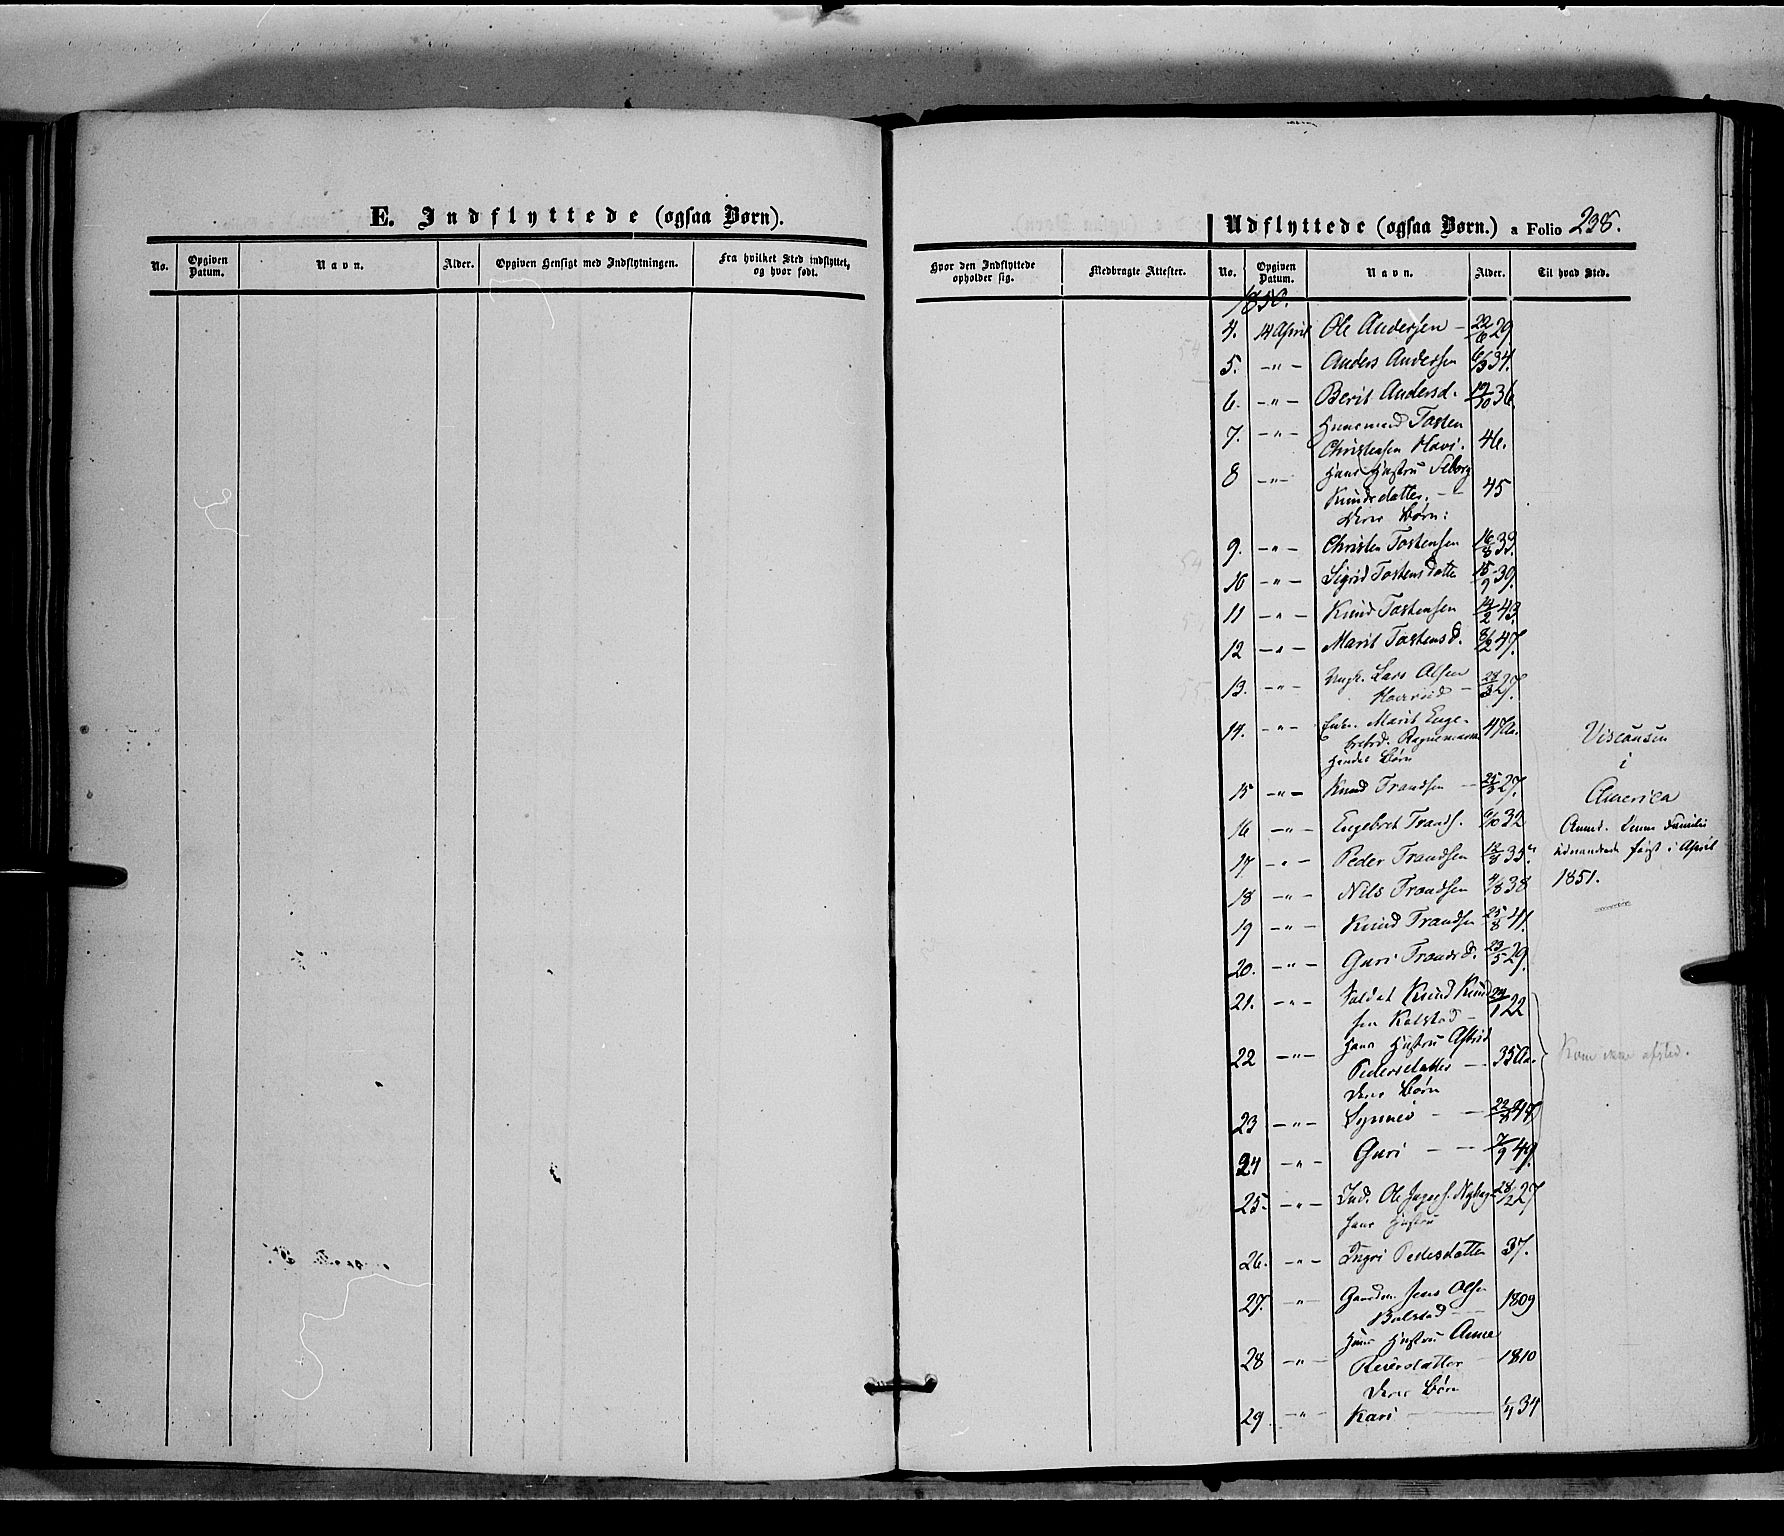 E. Indflyttede (ogsaa Børn).
No.
Opgiven Datum.
Navn.
Alder.
Opgiven Hensigt med Indflytningen.
Fra hvilket Sted indflyttet, og hvor født.
Udflyttede (ogsaa Børn.) a Folio 238.
Hvor den Indflyttede opholder sig.
Medbragte Attester.
No.
Opgiven Datum.
Navn.
Alder.
Til hvad Sted.
1850.
4. 14 April Ole Andersen – 22/6 29
5. –"– Anders Andersen 6/3 34.
6. –"– Berit Andersd. 19/10 36.
7. –"– Huusmand Tosten
Christensen 46.
8 –"– Hans Hustru Siborg
Knudsdatter. – 45
Deres Børn:
9. –"– Christen Tostensen 16/8 33.
10 –"– Sigrid Tostensdatter 15/9 39.
11 –"– Knud Tostensen 14/2 43.
12 –"– Marit Tostensd. 8/2 47.
13. –"– Ungk. Lars Olsen 28/3 27.
14. –"– Enke. Marit Enge-
bretsd. 47 Aa.
Hendes Børn
15 –"– Knud Trondsen – 25/3 27.
16 –"– Engebret Tronds. 6/10 32
17 –"– Peder Trondsen 12/8 35.
18 –"– Nils Trondsen 4/8 38
19 –"– Knud Trondsen 25/8 41.
20. –"– Guri Trondsd. 23/5 29.
Visconsin
i
America
Anmd. Denne Familie
udvandrede først i April
1851.
21. –"– Soldat Knud Knud-
sen Kolstad – 22
22 –"– Hans Hustru Astrid
Pedersdatter – 35 Aa.
Deres Børn
23 –"– Synnev – – 22/8 47
24 –"– Guri – – 7/9 49.
Kom ikke afsted.
25. –"– Ind. Ole 28/2 27
Hans Hustru
26. –"– Ingri Pedersdatter 37.
27. –"– Gaardm. Jens Olsen
Bolstad – 1809
28 –"– Hans Hustru Anne
– 1810
Deres Børn
29 –"– Kari – 1/4 34